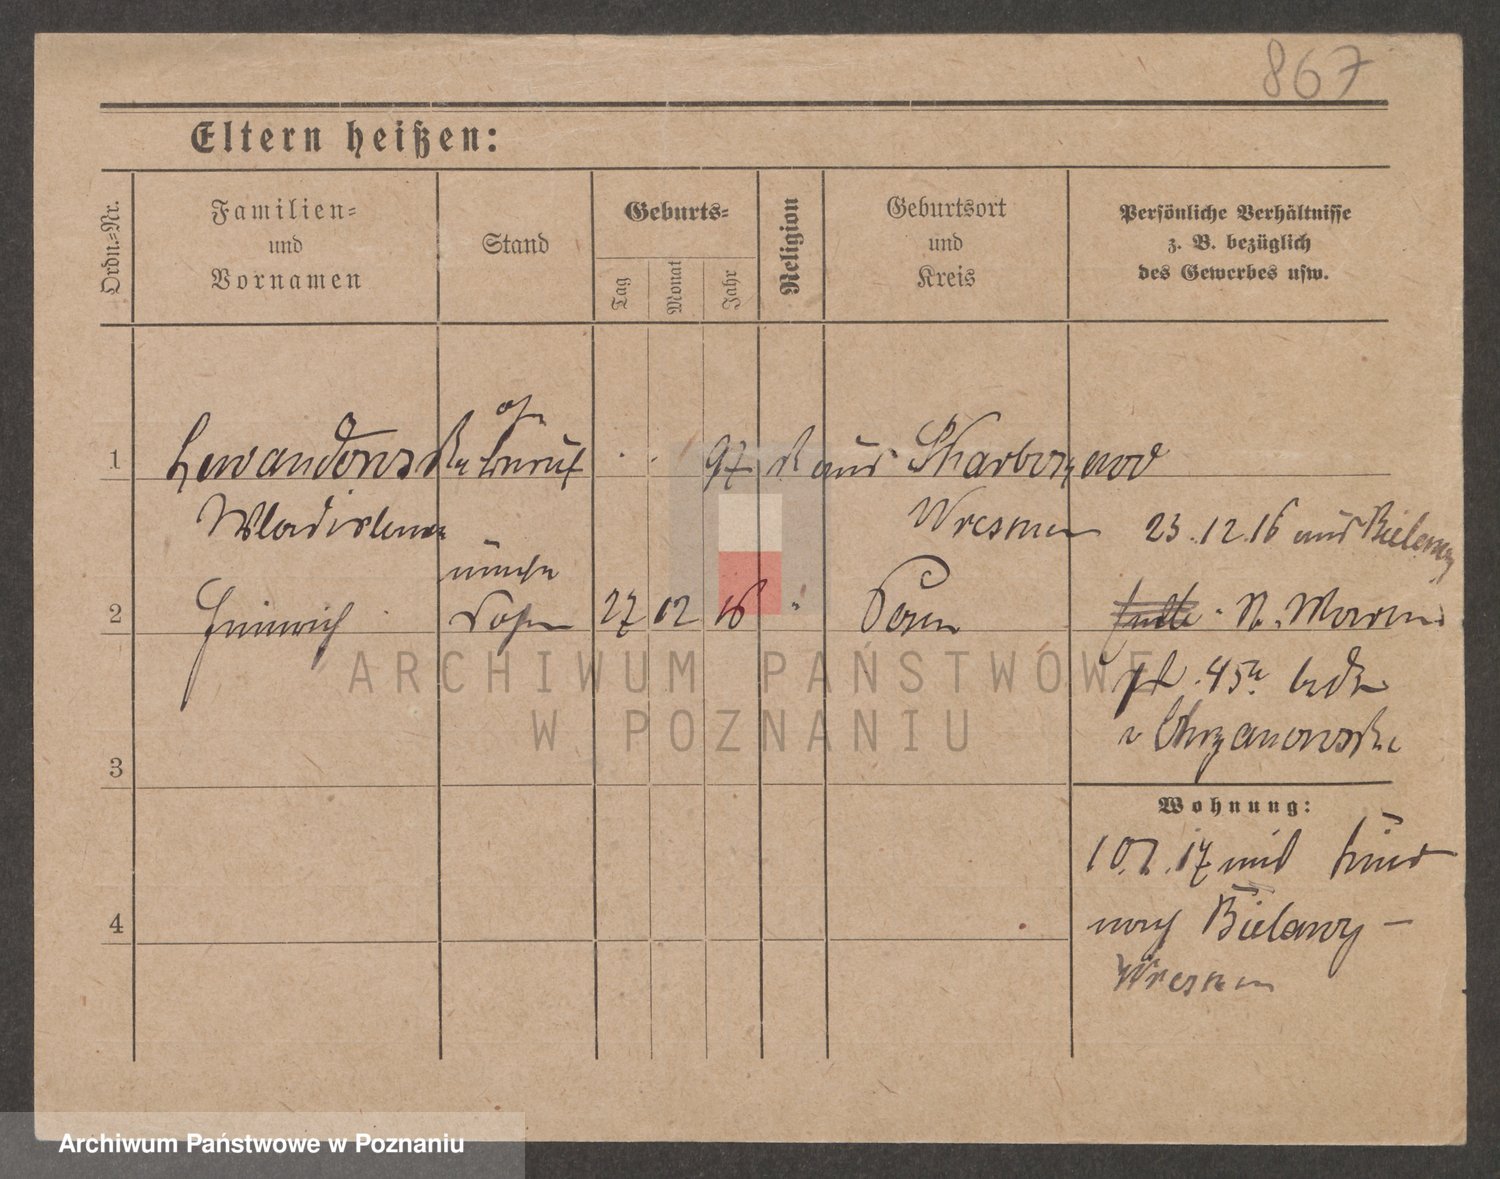 867
Eltern heißen:
Ordn.-Nr.
Familien-
und
Vornamen
Stand
Geburts-
Tag
Monat
Jahr
Religion
Geburtsort
und
Kreis
Persönliche Verhältnisse
z. B. bezüglich
des Gewerbes usw.
1
Lewandowska
oh
beruf
. . 97
k
aus
Skarboszewo
Wladislawa
Wreschen
23.12.16 aus Bielawy
2
Heinrich
unehe
Sohn
27 12 16
"
Posen
St. Martin
45
bei
v Chrzanowska
3
Wohnung:
10.1.17 mit Kind
nach Bielawy -
Wreschen
4
ARCHIWUM PAŃSTWOWE
W POZNANIU
Archiwum Państwowe w Poznaniu